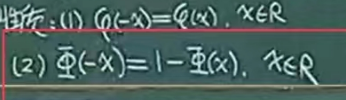 性质:(1) φ(-x)=φ(x). x∈R
(2) Φ(-x)=1-Φ(x). x∈R